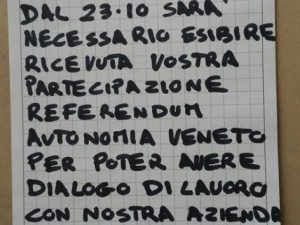 DAL 23.10 SARA'
NECESSARIO ESIBIRE
RICEVUTA VOSTRA
PARTECIPAZIONE
REFERENDUM
AUTONOMIA VENETO
PER POTER AVERE
DIALOGO DI LAVORO
CON NOSTRA AZIENDA